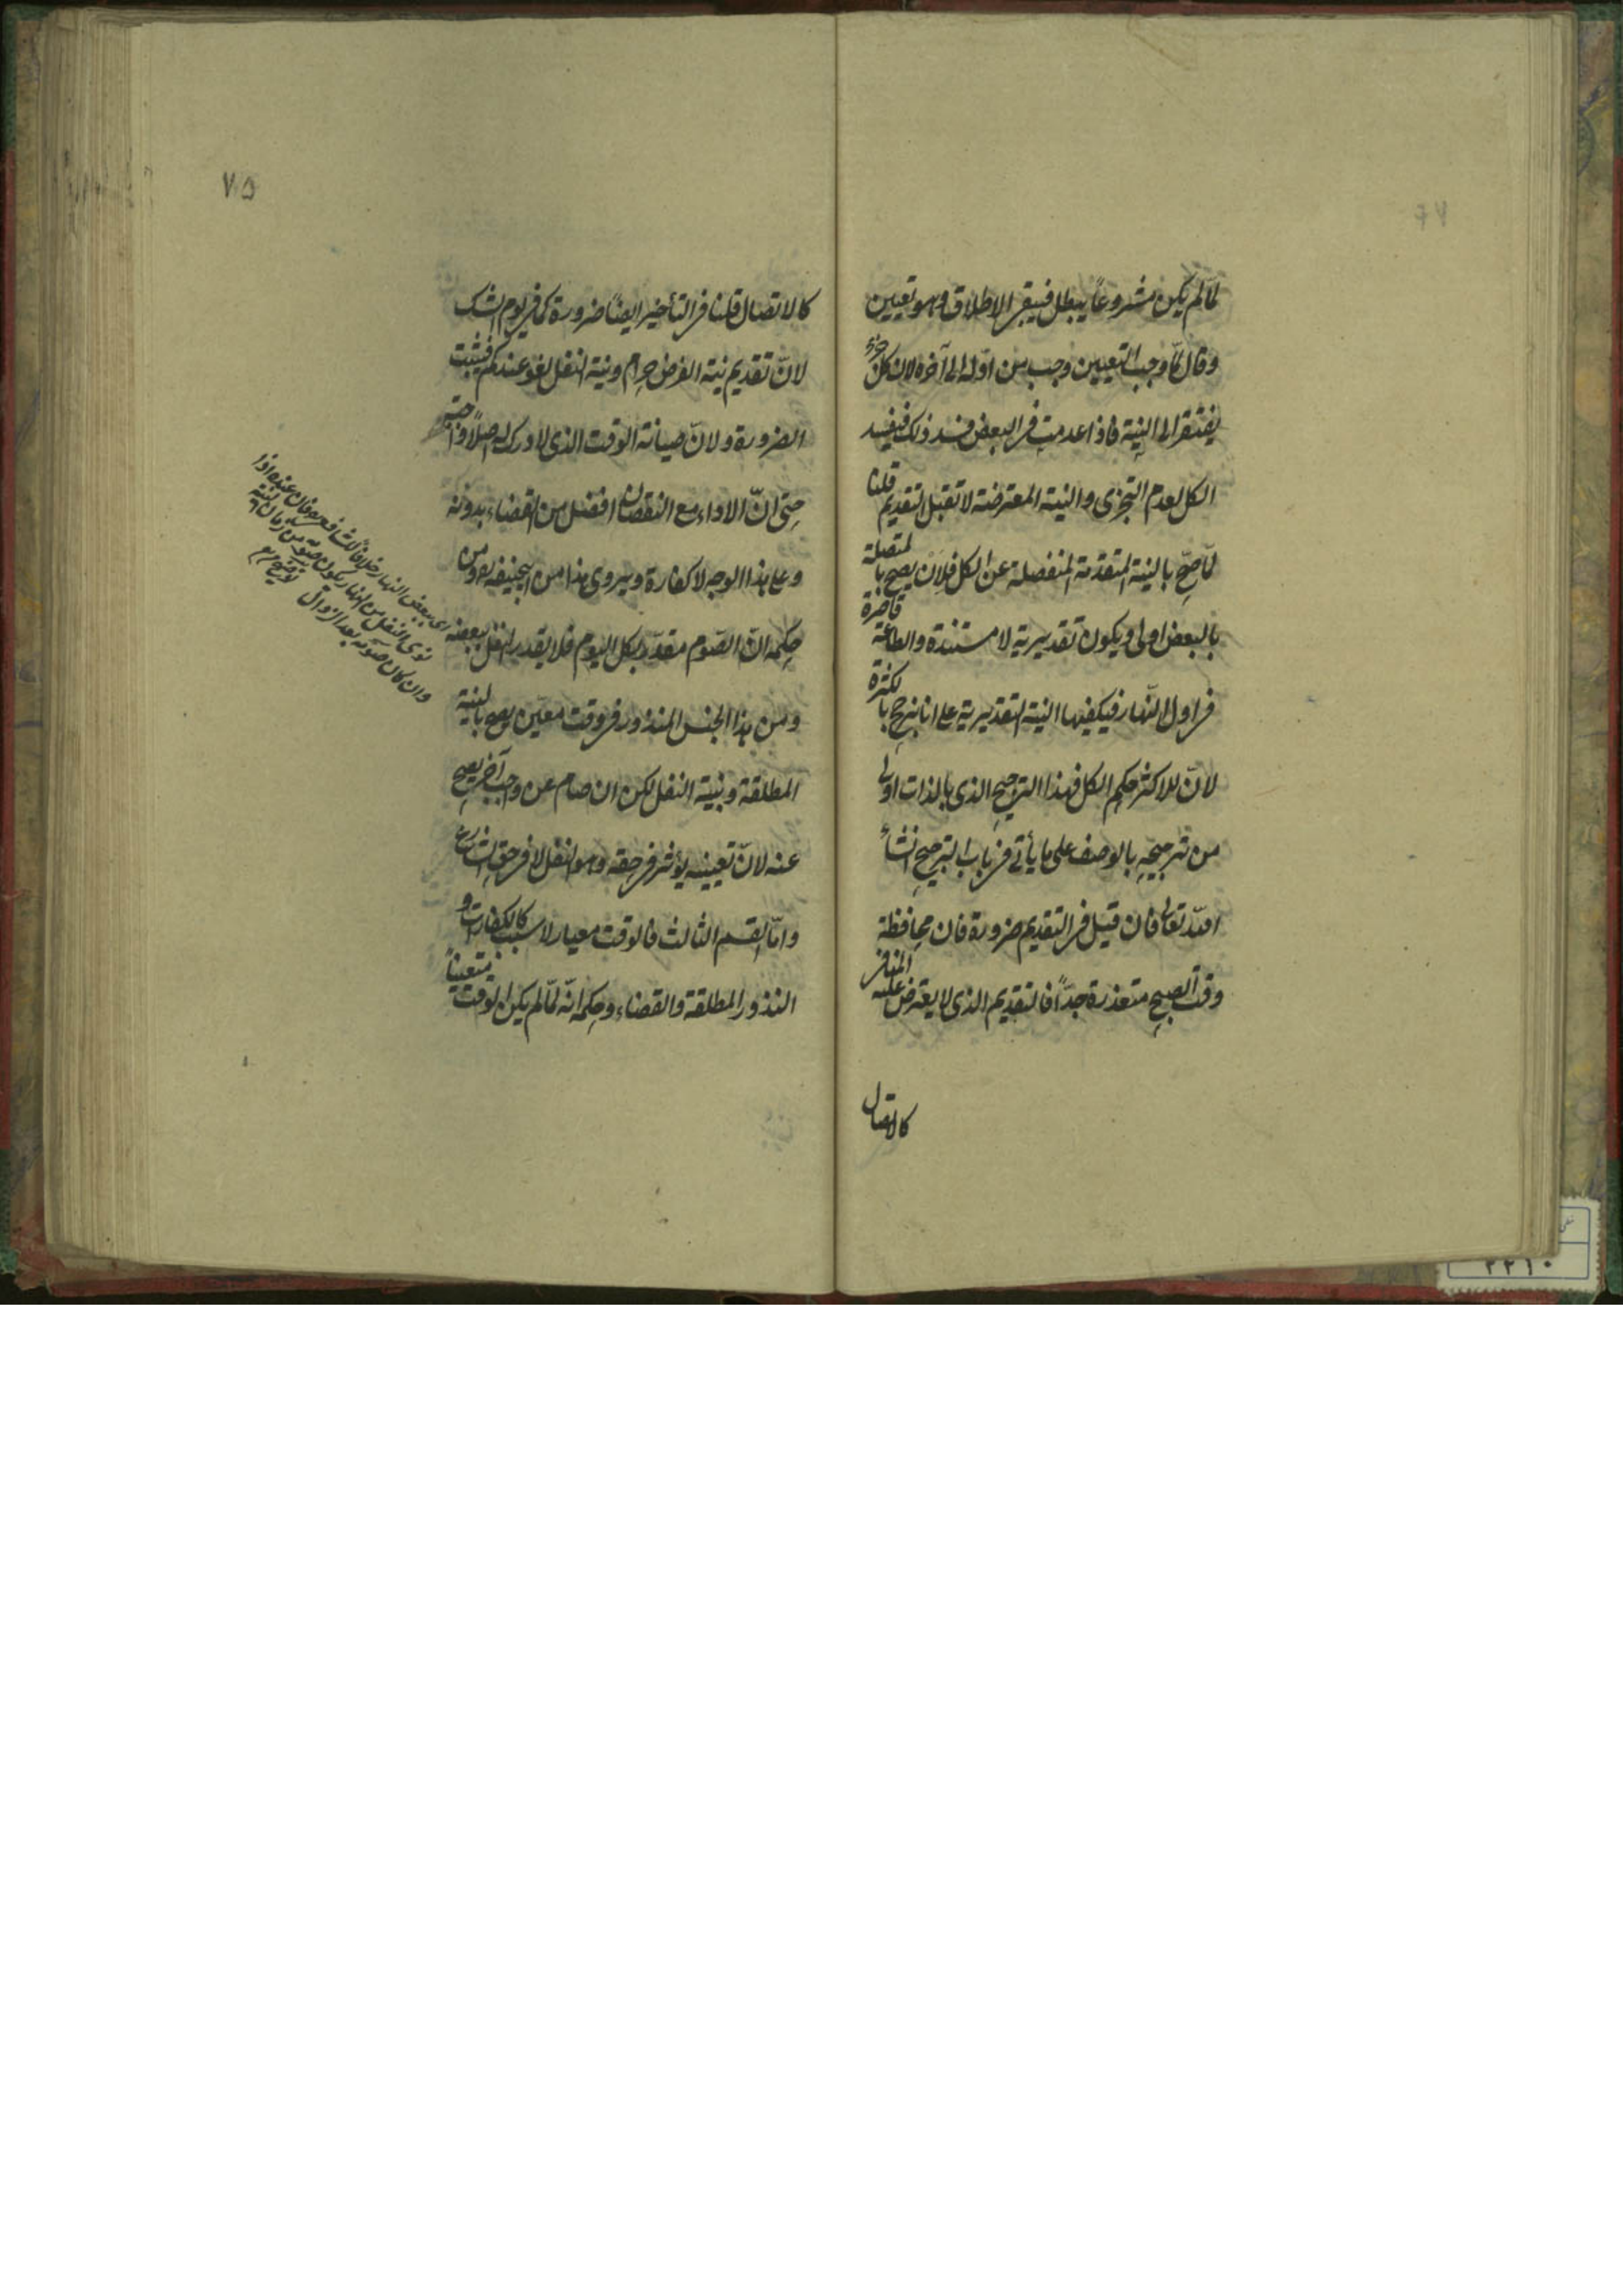 لمّا لم يكن مشروعاً يبطل فيبقى الاطلاق وهو تعيين
وقال لمّا وجب التعيين وجب من اوّله الى آخره لان كل جزء
يفتقر الى النية فاذا عدمت فى البعض فسد ذلك فيفسد
الكل لعدم التجزى والنية المعترضة لا تقبل التقديم قلنا
لمّا صحّ بالنية المتقدمة المنفصلة عن الكل فلان يصح بالمتصلة
بالبعض اولى ويكون تقديرية لا مستندة والطاعة قاصرة
فى اول النّهار فيكفيها النية التقديرية على انا نرجح بالكثرة
لانّ للاكثر حكم الكل فهذا الترجيح الذى بالذات اولى
من ترجيحه بالوصف على ما يأتى فى باب الترجيح انشأ
الله تعالى فان قيل فى التقديم ضرورة فان محافظة
وقت الصبح متعذرة جدّاً فالتقديم الذى لا يعترض عليه المنافى
كالاتصال
٧٥
كالاتصال قلنا فى التأخير ايضاً ضرورة كما فى يوم الشك
لانّ تقديم نية الفرض حرام ونية النفل لغو عندكم فيثبت
الضرورة ولانّ صيانة الوقت الذى لا درك له اصلاً واجبة
حتى انّ الاداء مع النقصان افضل من القضاء بدونه
وعلى هذا الوجه لا كفارة ويروى هذا من ابيحنيفة ره ومن
حكمه انّ الصّوم مقدّر بكل اليوم فلا يقدر النفل ببعضه
ومن هذا الجنس المنذور فى وقت معيّن يصح بالنية
المطلقة وبنية النفل لكن ان صام عن واجب آخر يصح
عنه لانّ تعيينه يؤثر فى حقه وهو النفل لا فى حق الشارع
وامّا القسم الثالث فالوقت معيار لا سبب كالكفارات و
النذور المطلقة والقضاء وحكمه انّه لمّا لم يكن الوقت متعيناً
اى ببعض النهار خلافاً للشافعى ره فان عنده اذا
نوى النفل من النهار يكون صومه من زمان النية
وان كان صومه بعد الزوال
توضيح